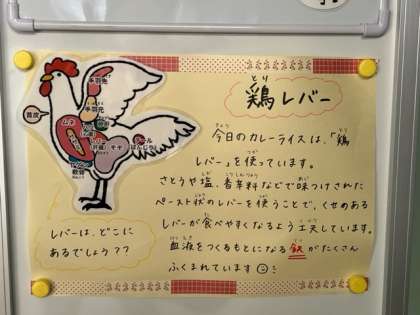 とり
鶏レバー
きょう
今日のカレーライスは、「鶏
レバー」を使っています。
さとうや塩、香辛料などで味つけされた
ペースト状のレバーを使うことで、くせのある
レバーが食べやすくなるよう工夫しています。
血液をつくるもとになる鉄がたくさん
ふくまれています
レバーは、どこに
あるでしょう??
首皮
手羽先
手羽元
ムネ
モモ
ぼんじり
軟骨